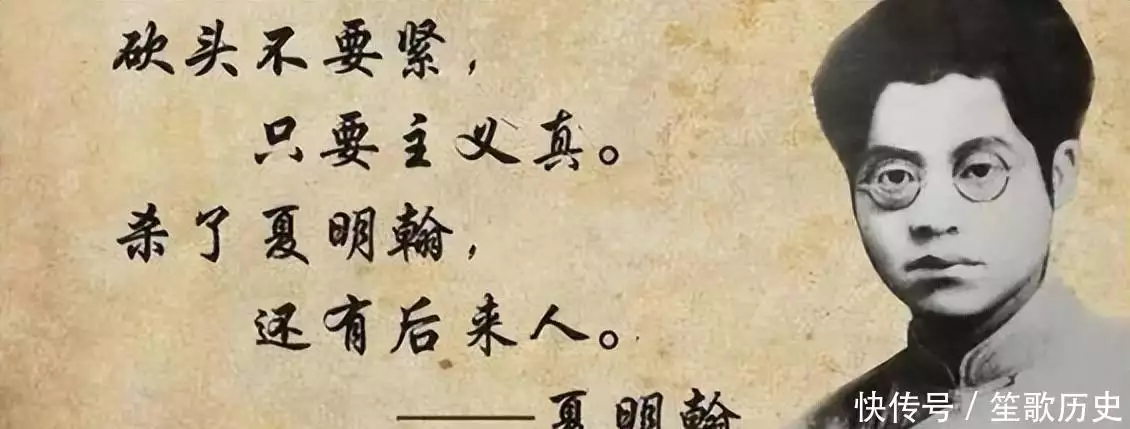 砍头不要紧，
只要主义真。
杀了夏明翰，
还有后来人。
——夏明翰
快传号 / 笙歌历史